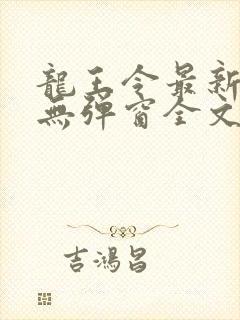 龍王令最新
無彈窗全文
吉鴻昌